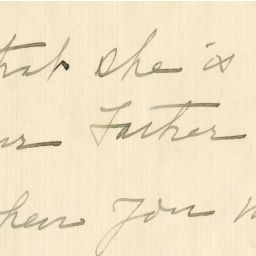 that she is
ur Father
hen you